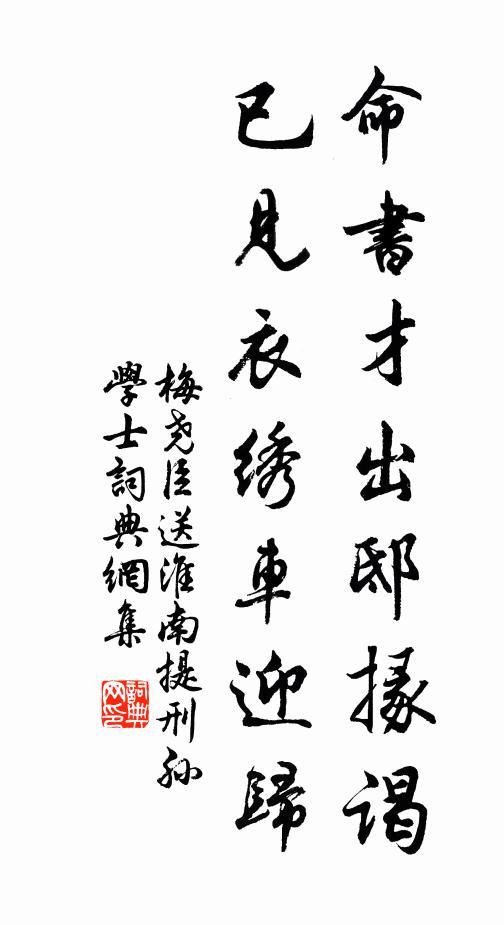 命書才出邸掾謁
已見衣綉車迎歸
梅尧臣送淮南提刑孙
學士詞典網集
詞典
网印